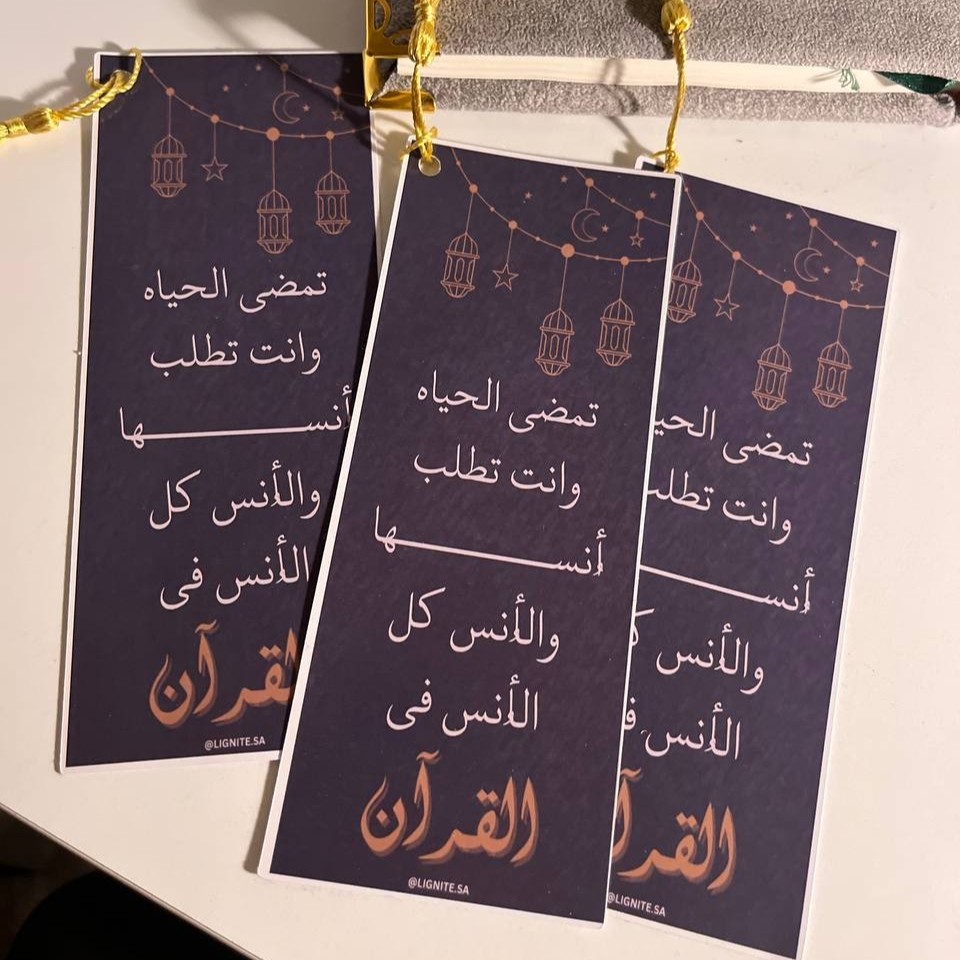 تمضى الحياه
وانت تطلب
أنســـــــــــها
والأنس كل
الأنس فى
القرآن
@LIGNITE.SA
تمضى الحياه
وانت تطلب
أنســـــــــــها
والأنس كل
الأنس فى
القرآن
@LIGNITE.SA
تمضى الحيا
وانت تطلب
أنســـــــــــ
والأنس ك
الأنس فى
القرآ
@LIGNITE.SA